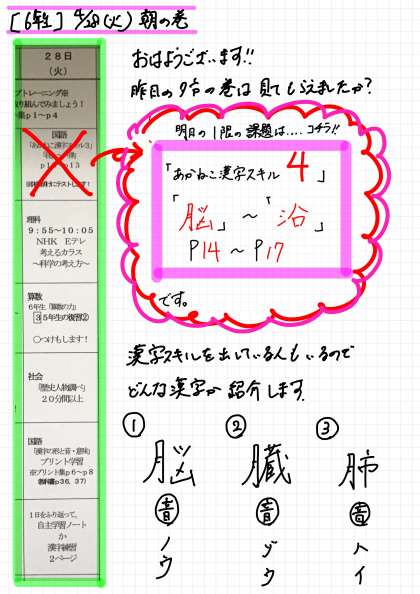 [6年生] 4/28(火) 朝の巻
28日
(火)
プトレーニング※
り組んでみましょう!
集p1〜p4
国語
理科
9:55〜10:05
NHK Eテレ
考えるカラス
〜科学の考え方〜
算数
6年生「算数の力」
3 5年生の復習②
○つけもします!
社会
「歴史人物調べ」
20分間以上
国語
「漢字の形と音・意味」
プリント学習
※プリント集p6〜p8
教科書p36、37)
1日をふり返って、
自主学習ノート
か
漢字練習
2ページ
おはようございます!!
昨日の夕方の巻は見てもらえましたか?
明日の1限の課題は....コチラ!!
「あかねこ漢字スキル4」
「脳」〜「沿」
P14〜P17
です。
漢字スキルを出している人もいるので
どんな漢字か紹介します。
① ② ③
脳 臓 肺
音 音 音
ノウ ゾウ ハイ